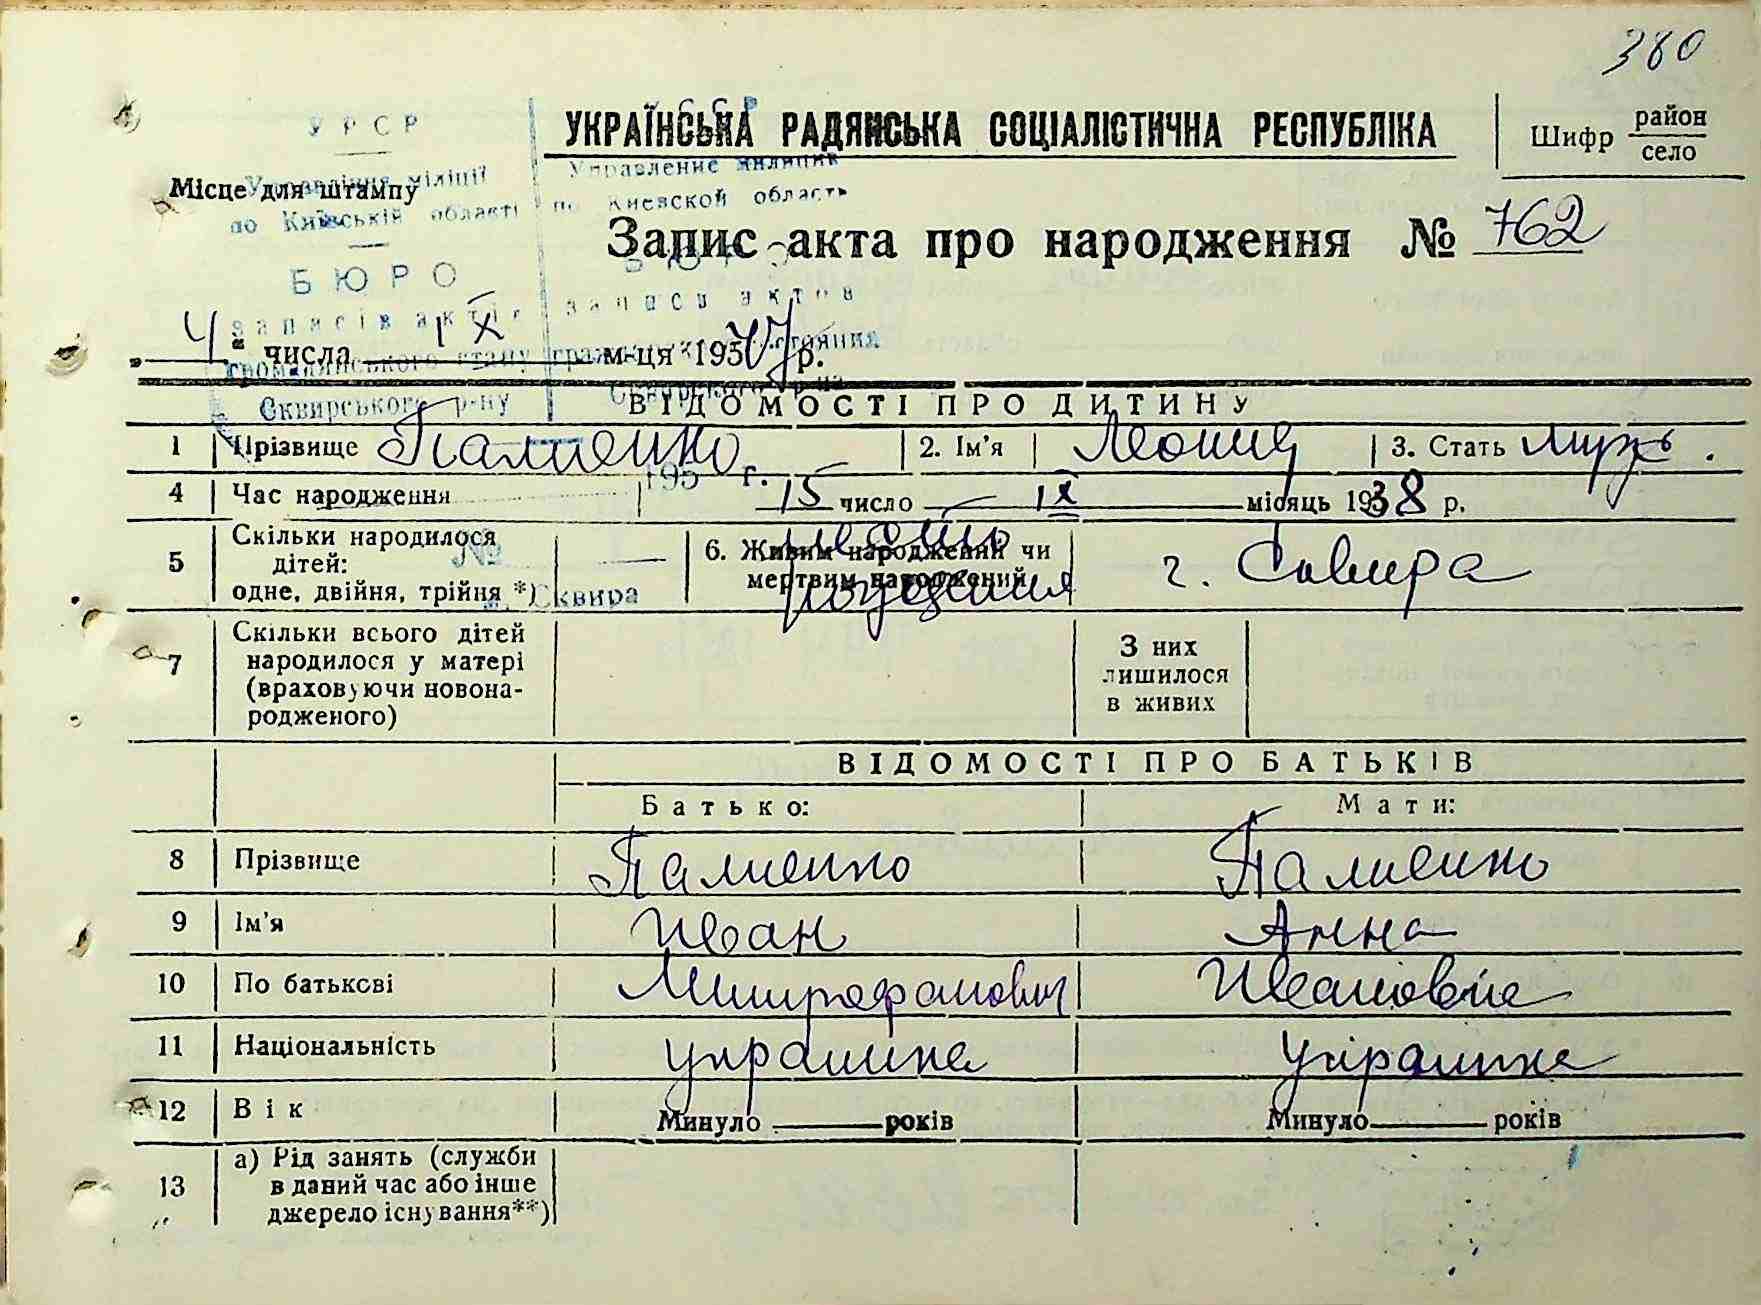 380
УКРАЇНСЬКА РАДЯНСЬКА СОЦІАЛІСТИЧНА РЕСПУБЛІКА
Шифр район
село
УРСР
Управління міліції
по Київській області
БЮРО
записів актів
громадянського стану
Сквирського р-ну
Управление милиции
по Киевской область
записи актов
гражданского состояния
Сквирского р-на
195 г.
№
Сквира
Місце для штампу
Запис акта про народження № 762
„ 4 “ числа IX м-ця 195 р.
ВІДОМОСТІ ПРО ДИТИНУ
1 Прізвище Палиенко 2. Ім'я Леонид 3. Стать муж.
4 Час народження 15 число IX місяць 1938 р.
5 Скільки народилося
дітей:
одне, двійня, трійня *)
6. Живим народжений чи
мертвим народжений
место
рождения
г. Сквира
7 Скільки всього дітей
народилося у матері
(враховуючи новона-
родженого)
З них
лишилося
в живих
ВІДОМОСТІ ПРО БАТЬКІВ
Батько: Мати:
8 Прізвище Палиенко Палиенко
9 Ім'я Иван Анна
10 По батькові Митрофанович Ивановна
11 Національність украинец украинка
12 Вік Минуло років Минуло років
13 а) Рід занять (служби
в даний час або інше
джерело існування**)